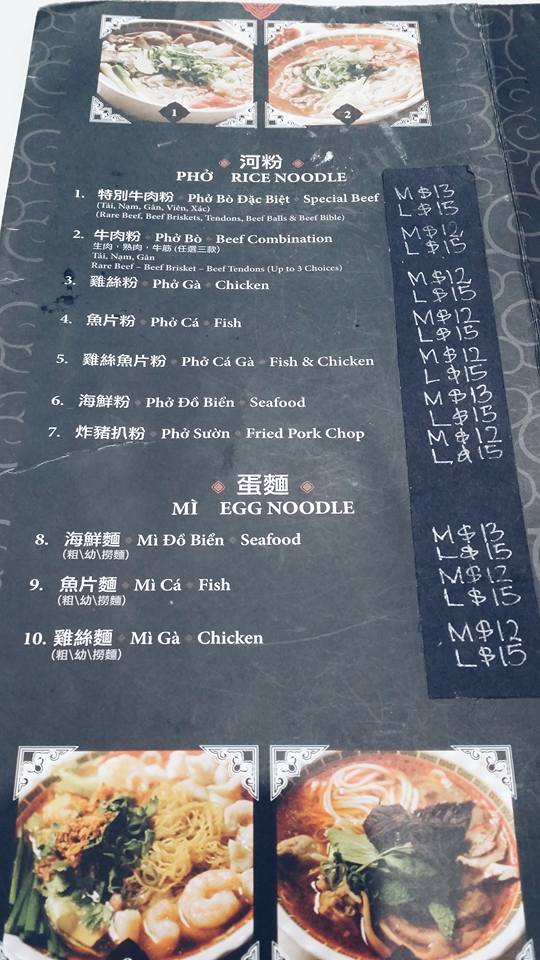 1
2
河粉
PHỞ RICE NOODLE
1. 特別牛肉粉 Phở Bò Đặc Biệt Special Beef M $13
(Tái, Nạm, Gân, Viên, Xác) L $15
(Rare Beef, Beef Briskets, Tendons, Beef Balls & Beef Bible)
2. 牛肉粉 Phở Bò Beef Combination M $12
生肉，熟肉，牛筋 (任選三款) L $15
Tái, Nạm, Gân
Rare Beef – Beef Brisket – Beef Tendons (Up to 3 Choices)
3. 雞絲粉 Phở Gà Chicken M $12
L $15
4. 魚片粉 Phở Cá Fish M $12
L $15
5. 雞絲魚片粉 Phở Cá Gà Fish & Chicken M $12
L $15
6. 海鮮粉 Phở Đồ Biển Seafood M $13
L $15
7. 炸豬扒粉 Phở Sườn Fried Pork Chop M $12
L $15
蛋麵
MÌ EGG NOODLE
8. 海鮮麵 Mì Đồ Biển Seafood M $13
(粗\幼\撈麵) L $15
9. 魚片麵 Mì Cá Fish M $12
(粗\幼\撈麵) L $15
10. 雞絲麵 Mì Gà Chicken M $12
(粗\幼\撈麵) L $15